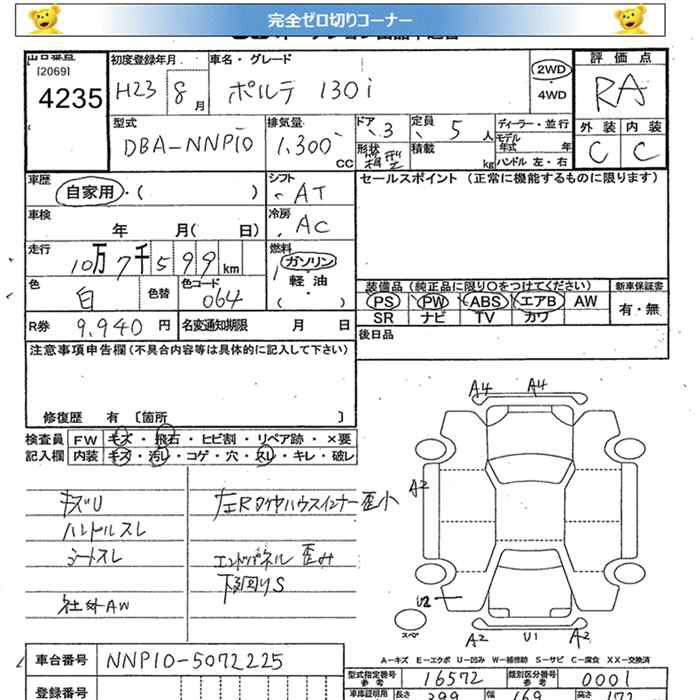 完全ゼロ切りコーナー
[2069]
4235
初度登録年月
H23 8月
車名・グレード
ポルテ 130i
2WD
・
4WD
評価点
RA
外装 内装
C C
型式
DBA-NNP10
排気量
1,300 CC
ドア 3
定員 5人
形状 箱型
積載 kg
ディーラー・並行
モデル年式 年
ハンドル 左・右
車歴
自家用・( )
シフト
AT
セールスポイント (正常に機能するものに限ります)
車検
年 月( 日)
冷房
AC
走行
10万7千599km
燃料
ガソリン
軽油
( )
色
白
色替
色コード
064
装備品 (純正品に限り○をつけてください)
PS PW ABS エアB AW
SR ナビ TV カワ
新車保証書
有・無
R券 9,940円
名変通知期限 月 日
後日品
注意事項申告欄(不具合内容等は具体的に記入して下さい)
修復歴 有 [箇所 ]
検査員 FW キズ・飛石・ヒビ割・リペア跡・×要
記入欄 内装 キズ・汚レ・コゲ・穴・スレ・キレ・破レ
キズU
ハンドルスレ
シートスレ
社外AW
左Rタイヤハウスインナー歪小
エンドパネル歪み
下回りS
A4 A4
A2
U2
スペア
A2 U1 A2
A－キズ E－エクボ U－凹み W－補修跡 S－サビ C－腐食 XX－交換済
車台番号 NNP10-5072225
型式指定番号 参考 16572
類別区分番号 参考 0001
登録番号
車庫証明用 長さ 399 幅 169 高さ